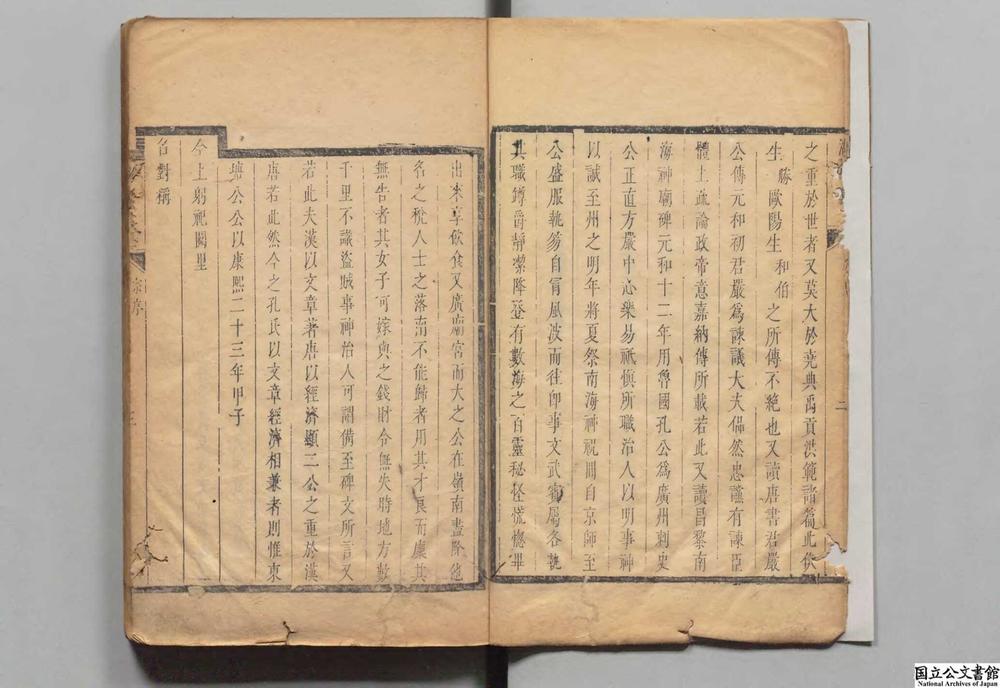 之重於世者又莫大於堯典禹貢洪範諸篇此伏
生勝歐陽生和伯之所傳不絶也又讀唐書君嚴
公傳元和初君嚴爲諫議大夫侃然忠讜有諫臣
體上疏論政帝意嘉納傳所載若此又讀昌黎南
海神廟碑元和十二年用魯國孔公爲廣州刺史
公正直方嚴中心樂易祗愼所職治人以明事神
以誠至州之明年將夏祭南海神祝冊自京師至
公盛服執笏自冐風波而往卽事文武賓屬各執
其職罇爵靜潔降登有數海之百靈秘怪慌惚畢
二
出來享飲食又廣廟宮而大之公在嶺南盡除他
名之稅人士之落南不能歸者用其才良而廩其
無告者其女子可嫁與之錢財令無失時地方數
千里不識盜賊事神治人可謂備至碑文所言又
若此夫漢以文章著唐以經濟顯二公之重於漢
唐若此然今之孔氏以文章經濟相兼者則惟東
塘公公以康熙二十三年甲子
今上躬祀闕里
召對稱
序
三
国立公文書館
National Archives of Japan